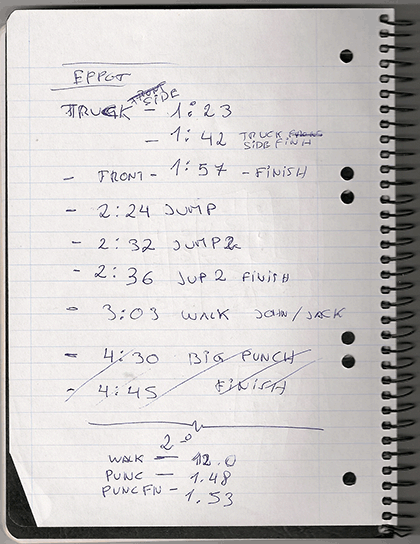 EFFOT
TRUCK SIDE - 1:23
- 1:42 TRUCK SIDE FINH
- FRONT - 1:57 - FINISH
- 2:24 JUMP
- 2:32 JUMP 2
- 2:36 JUP 2 FINISH
- 3:03 WALK JOHN / JACK
- 4:30 BIG PUNCH
- 4:45 FINISH
2-0
WALK - 12.0
PUNC - 1.48
PUNCFIN - 1.53